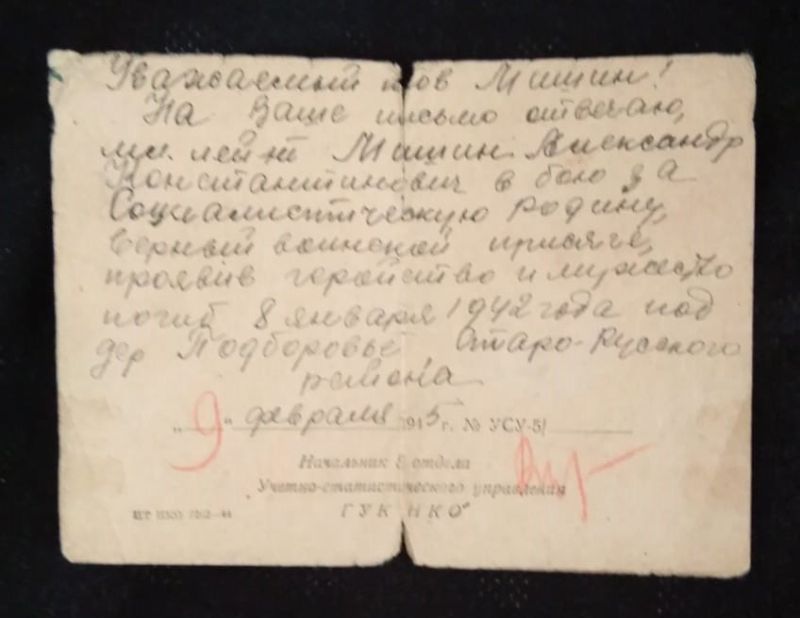 Уважаемый тов Мишин!
На Ваше письмо отвечаю,
мл. лей-т Мишин Александр
Константинович в бою за
Социалистическую Родину,
верный воинской присяге,
проявив геройство и мужество
погиб 8 января 1942 года под
дер Подборовье Старо-Русского
района
„9“ февраля 1945 г. № УСУ-5/
Начальник 5 отдела
Учетно-статистического управления
ГУК НКО
ЦТ НКО